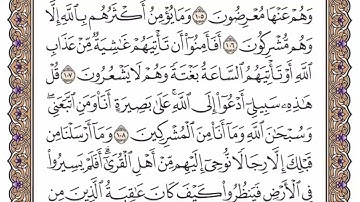 وَهُمْ عَنْهَا مُعْرِضُونَ ١٠٥ وَمَا يُؤْمِنُ أَكْثَرُهُم بِٱللَّهِ إِلَّا
وَهُم مُّشْرِكُونَ ١٠٦ أَفَأَمِنُوٓا۟ أَن تَأْتِيَهُمْ غَٰشِيَةٌ مِّنْ عَذَابِ
ٱللَّهِ أَوْ تَأْتِيَهُمُ ٱلسَّاعَةُ بَغْتَةً وَهُمْ لَا يَشْعُرُونَ ١٠٧ قُلْ
هَٰذِهِۦ سَبِيلِىٓ أَدْعُوٓا۟ إِلَى ٱللَّهِ عَلَىٰ بَصِيرَةٍ أَنَا۠ وَمَنِ ٱتَّبَعَنِى
وَسُبْحَٰنَ ٱللَّهِ وَمَآ أَنَا۠ مِنَ ٱلْمُشْرِكِينَ ١٠٨ وَمَآ أَرْسَلْنَا مِن
قَبْلِكَ إِلَّا رِجَالًا نُّوحِىٓ إِلَيْهِم مِّنْ أَهْلِ ٱلْقُرَىٰٓ أَفَلَمْ يَسِيرُوا۟
فِى ٱلْأَرْضِ فَيَنظُرُوا۟ كَيْفَ كَانَ عَٰقِبَةُ ٱلَّذِينَ مِن